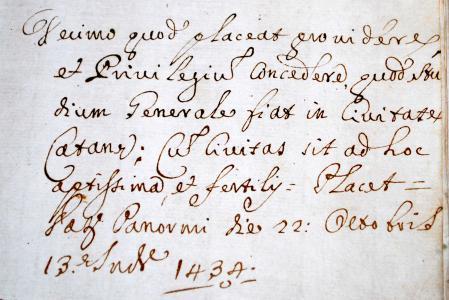 Decimo quod placeat providere
et Privilegiu͂ Concedere, quod Stu
dium Generale fiat in Civitate
Catanę; Cu͂ Civitas sit ad hoc
aptissima, et fertilis = Placet =
Panormi die 22: Octobris
13.ę Indis 1434.